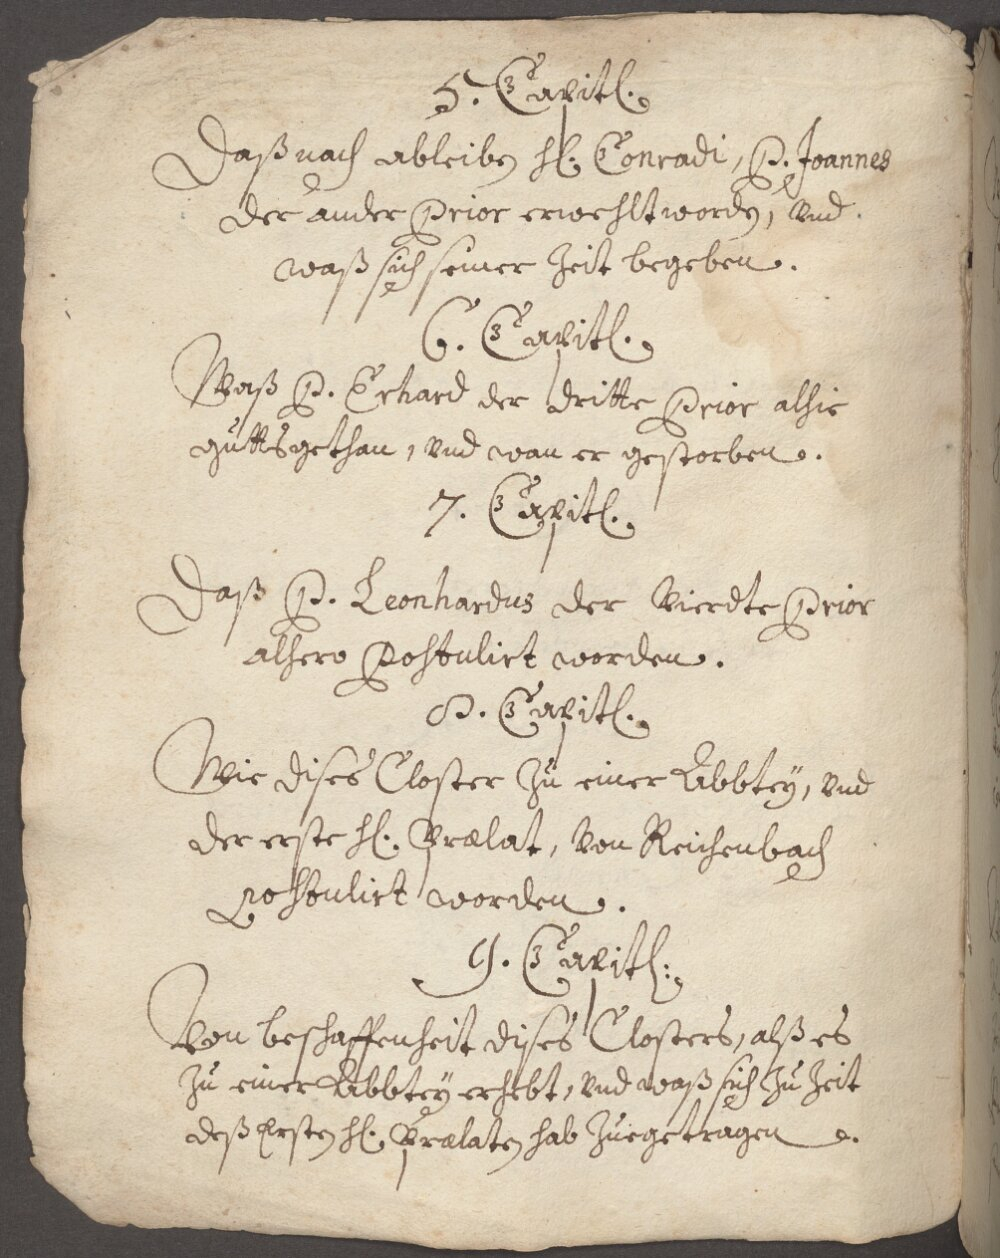 5. Capitl.
Daß nach ableiben H. Conradi, P. Joannes
der ander Prior erwehlt worden, vnd
waß sich seiner Zeit begeben.
6. Capitl.
Waß P. Erhard der dritte Prior alhie
gutts gethan, vnd wan er gestorben.
7. Capitl.
Daß P. Leonhardus der Vierdte Prior
alhero Postulirt worden.
8. Capitl.
Wie dises Closter Zu einer Abbtey, vnd
der erste H. Prælat, Von Reichenbach
postulirt worden.
9. Capitl:
Von beschaffenheit dises Closters, alß es
Zu einer Abbtey erhebt, vnd waß sich Zu Zeit
deß Ersten H. Prælaten hab Zuegetragen.